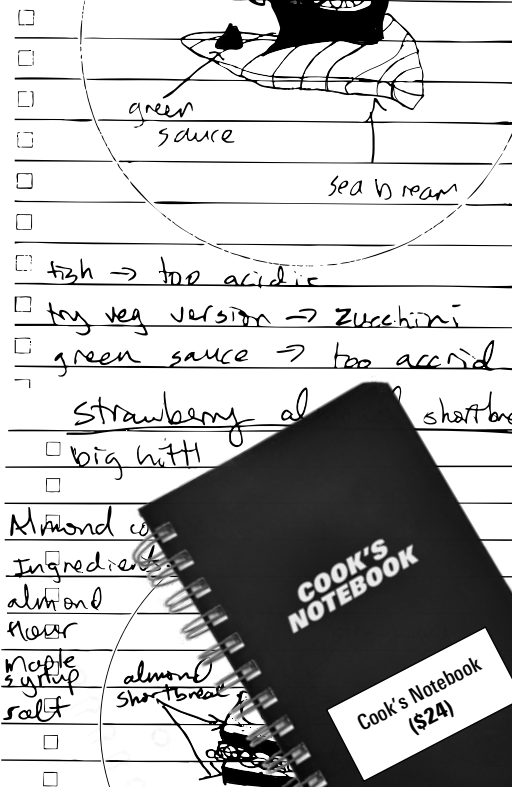 green
sauce
sea bream
fish → too acidic
try veg version → zucchini
green sauce → too accrid
strawberry
big hitt!
Almond
Ingredients
almond
flour
maple
syrup
salt
almond
shortbread
COOK'S
NOTEBOOK
Cook's Notebook
($24)